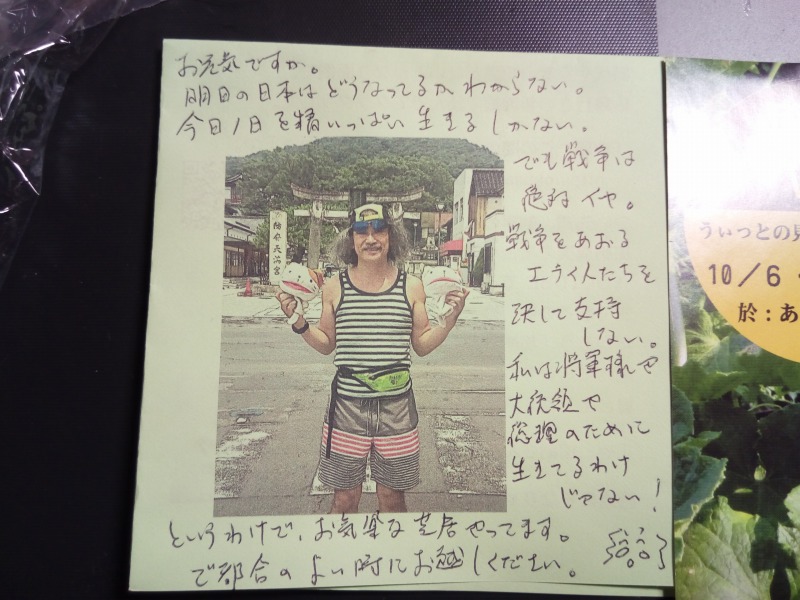 お元気ですか。
明日の日本はどうなってるかわからない。
今日1日を精いっぱい生きるしかない。
でも戦争は
絶対イヤ。
戦争をあおる
エライ人たちを
決して支持
しない。
私は将軍様や
大統領や
総理のために
生きてるわけ
じゃない!
というわけで、お気楽な芝居やってます。
ご都合のよい時にお越しください。
防府天満宮
うぃっとの見
10/6・
於:あ